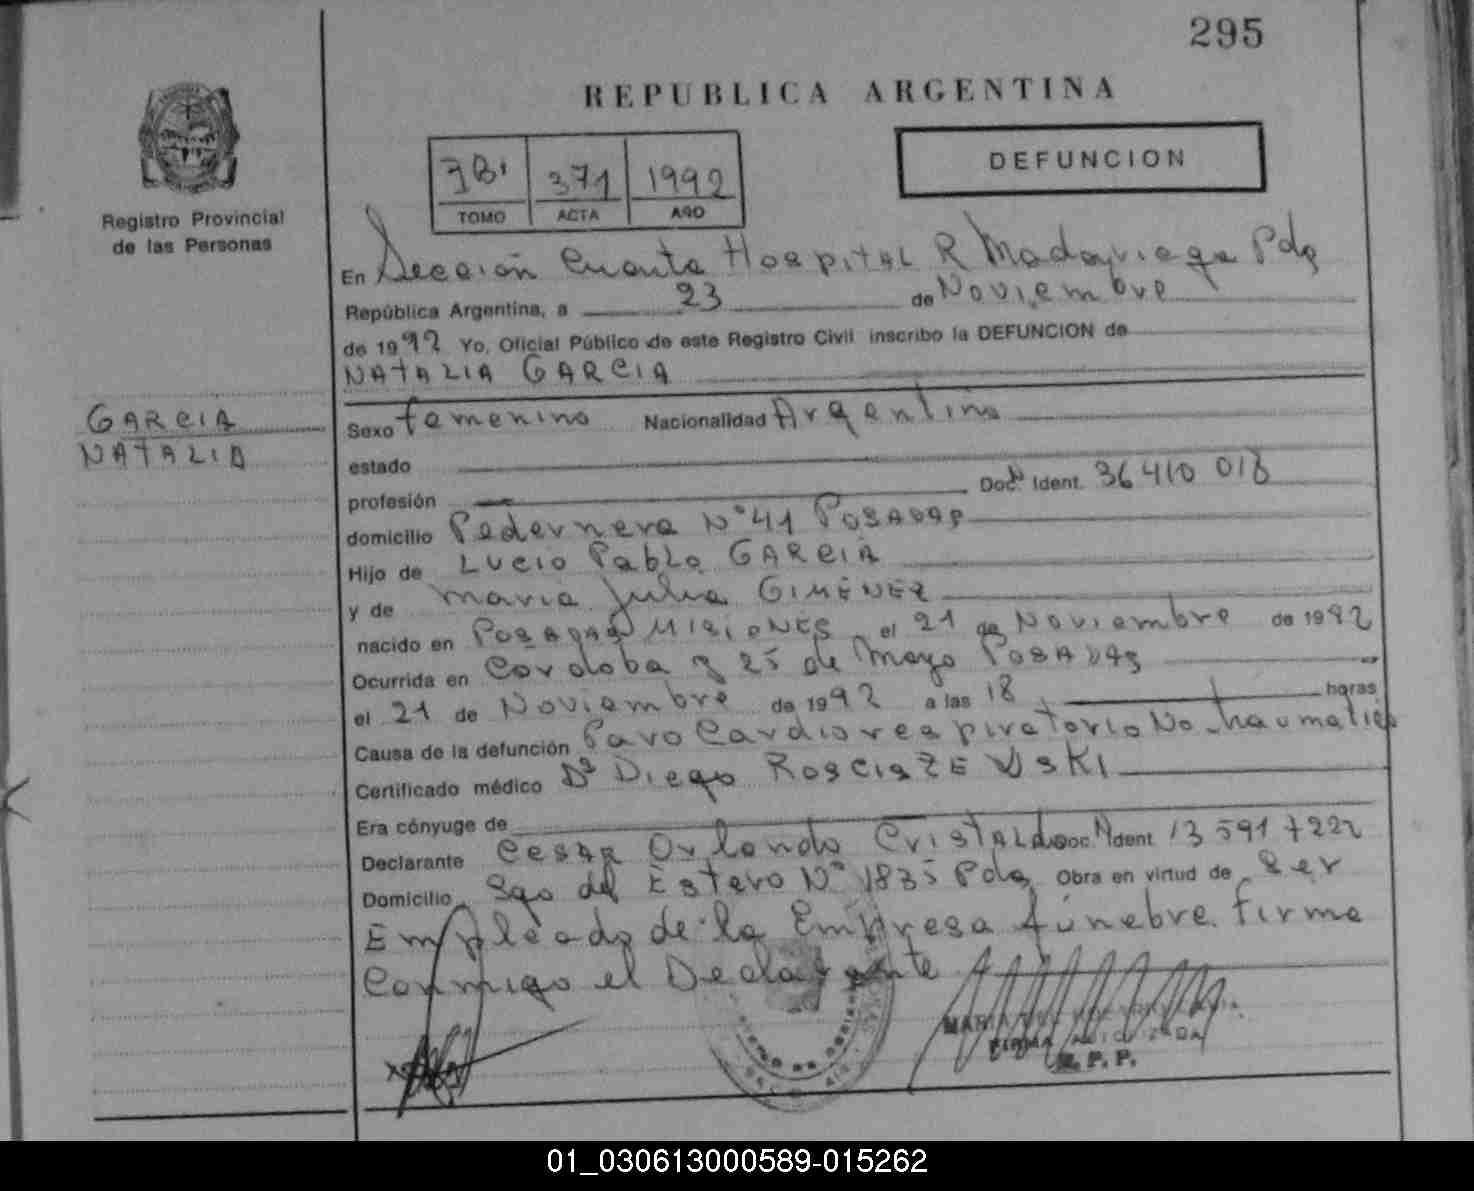 295
REPUBLICA ARGENTINA
Registro Provincial
de las Personas
371 1992
TOMO ACTA AÑO
DEFUNCION
En Sección Cuarta Hospital R Madariaga Pdas
República Argentina, a 23 de Noviembre
de 1992 Yo, Oficial Público de este Registro Civil inscribo la DEFUNCION de
NATALIA GARCIA
GARCIA
NATALIA
Sexo femenino Nacionalidad Argentina
estado
profesión Doc. Ident. 36 410 018
domicilio Pedernera N° 41 POSADAS
Hijo de Lucio Pablo GARCIA
y de María Julia GIMÉNEZ
nacido en POSADAS MISIONES el 21 de Noviembre de 1992
Ocurrida en Cordoba y 25 de Mayo POSADAS
el 21 de Noviembre de 1992 a las 18 horas
Causa de la defunción Paro Cardiorespiratorio No traumatico
Certificado médico Dr Diego ROSCISZEWSKI
Era cónyuge de
Declarante Cesar Orlando CRISTALDO Doc. Ident 13 591 7222
Domicilio Sgo del Estero N° 1835 Pdas Obra en virtud de ser
Empleado de la Empresa fúnebre. Firma
Conmigo el Declarante
FIRMA AUTORIZADA
R. P. P.
01_030613000589-015262